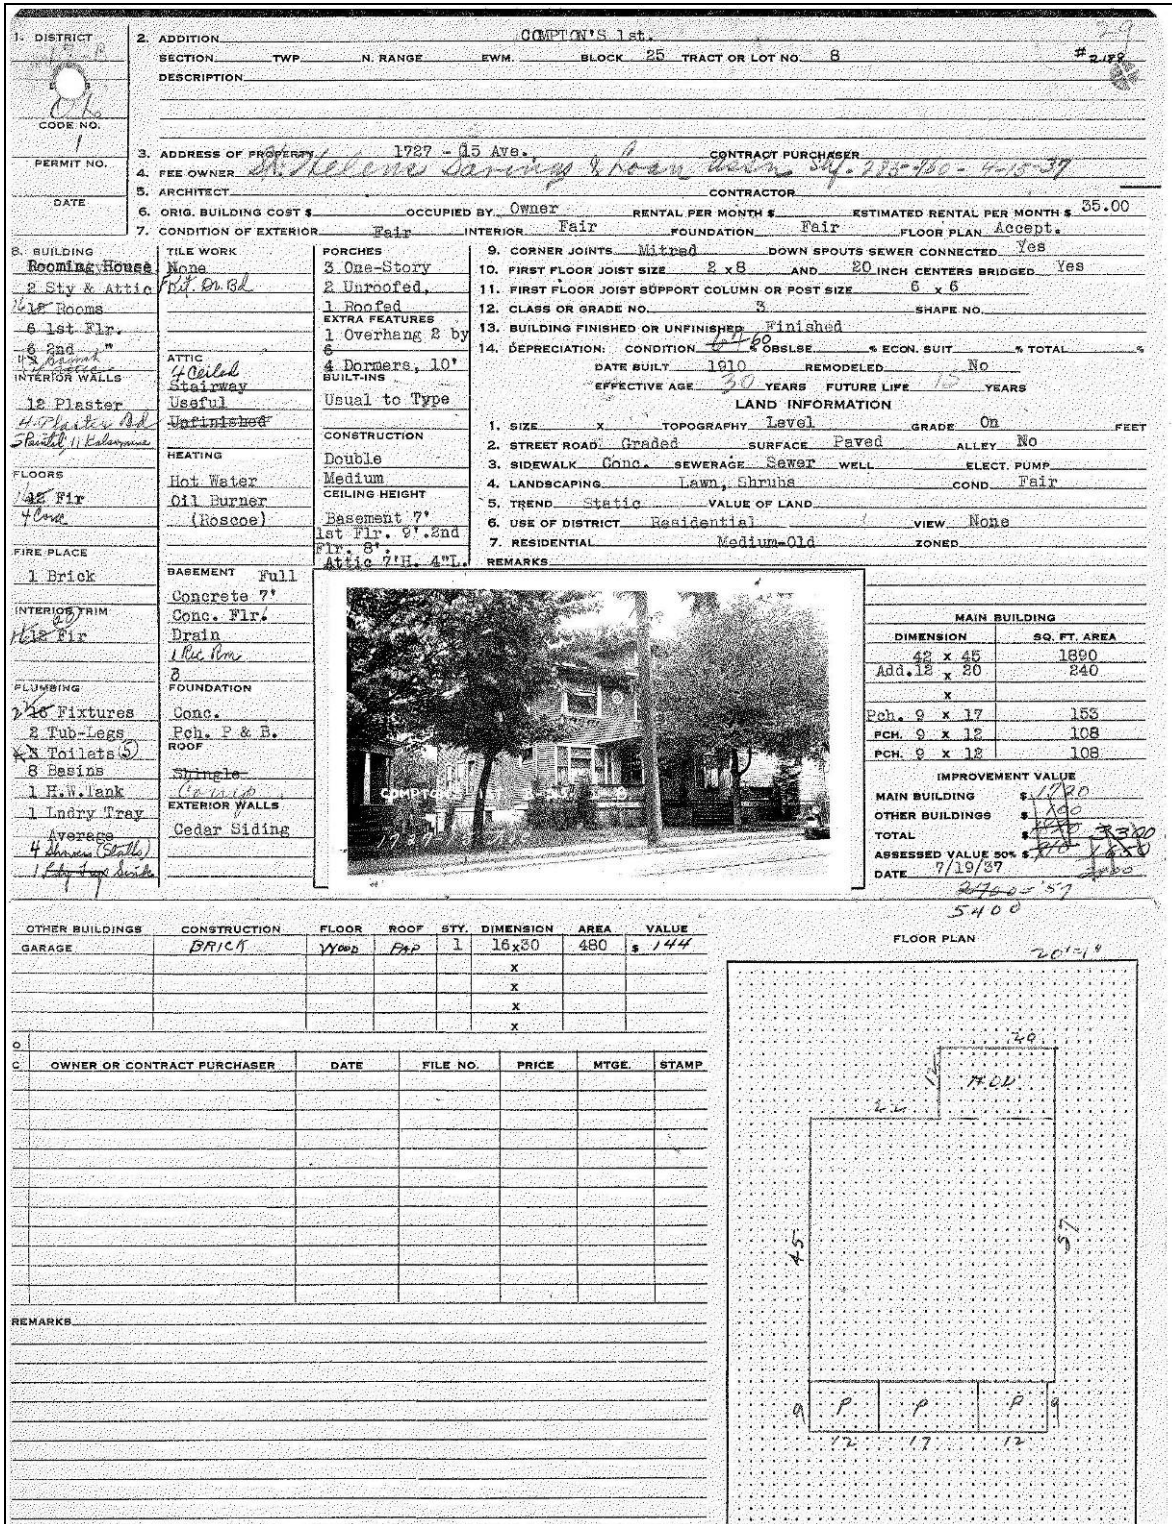 29
1. DISTRICT
CODE NO.
1
PERMIT NO.
DATE
2. ADDITION COMPTON'S 1st.
SECTION TWP N. RANGE EWM. BLOCK 25 TRACT OR LOT NO. 8
DESCRIPTION
3. ADDRESS OF PROPERTY 1727 - 15 Ave. CONTRACT PURCHASER
4. FEE OWNER St. Helens Savings & Loan Assn. 9-15-37
5. ARCHITECT CONTRACTOR
6. ORIG. BUILDING COST $ OCCUPIED BY Owner RENTAL PER MONTH $ ESTIMATED RENTAL PER MONTH $ 35.00
7. CONDITION OF EXTERIOR Fair INTERIOR Fair FOUNDATION Fair FLOOR PLAN Accept.
8. BUILDING
Rooming House
2 Sty & Attic
Rooms
6 1st Flr.
6 2nd "
INTERIOR WALLS
12 Plaster
4 Plaster Bd
FLOORS
12 Fir
4 Conc
FIRE PLACE
1 Brick
INTERIOR TRIM
12 Fir
PLUMBING
Fixtures
2 Tub-Legs
Toilets (5)
8 Basins
1 H.W. Tank
1 Lndry Tray
Average
4 Showers (Stalls)
TILE WORK
None
ATTIC
4 Ceiled
Stairway
Useful
Unfinished
HEATING
Hot Water
Oil Burner
(Roscoe)
BASEMENT Full
Concrete 7'
Conc. Flr.
Drain
1 Rec Rm
FOUNDATION
Conc.
Pch. P & B.
ROOF
Shingle
Comp
EXTERIOR WALLS
Cedar Siding
PORCHES
3 One-Story
2 Unroofed,
1 Roofed
EXTRA FEATURES
1 Overhang 2 by
6
4 Dormers, 10'
BUILT-INS
Usual to Type
CONSTRUCTION
Double
Medium
CEILING HEIGHT
Basement 7'
1st Flr. 9'.2nd
Flr. 8'.
Attic 7'H. 4"L.
9. CORNER JOINTS Mitred DOWN SPOUTS SEWER CONNECTED Yes
10. FIRST FLOOR JOIST SIZE 2 x 8 AND 20 INCH CENTERS BRIDGED Yes
11. FIRST FLOOR JOIST SUPPORT COLUMN OR POST SIZE 6 x 6
12. CLASS OR GRADE NO. 3 SHAPE NO.
13. BUILDING FINISHED OR UNFINISHED Finished
14. DEPRECIATION: CONDITION 60 % OBSLSE % ECON. SUIT % TOTAL %
DATE BUILT 1910 REMODELED No
EFFECTIVE AGE 30 YEARS FUTURE LIFE 15 YEARS
LAND INFORMATION
1. SIZE x TOPOGRAPHY Level GRADE On FEET
2. STREET ROAD Graded SURFACE Paved ALLEY No
3. SIDEWALK Conc. SEWERAGE Sewer WELL ELECT. PUMP
4. LANDSCAPING Lawn, Shrubs COND. Fair
5. TREND Static VALUE OF LAND
6. USE OF DISTRICT Residential VIEW None
7. RESIDENTIAL Medium-Old ZONED
REMARKS
COMPTON'S 1ST
MAIN BUILDING
DIMENSION SQ. FT. AREA
42 x 45 1890
Add. 12 x 20 240
x
Pch. 9 x 17 153
PCH. 9 x 12 108
PCH. 9 x 12 108
IMPROVEMENT VALUE
MAIN BUILDING $ 1720
OTHER BUILDINGS $
TOTAL $ 3300
ASSESSED VALUE 50% $ 1650
DATE 7/19/37
5400
OTHER BUILDINGS CONSTRUCTION FLOOR ROOF STY. DIMENSION AREA VALUE
GARAGE BRICK WOOD PAP 1 16x30 480 $ 144
x
x
x
x
O
C OWNER OR CONTRACT PURCHASER DATE FILE NO. PRICE MTGE. STAMP
REMARKS
FLOOR PLAN
20'-1"
20
12
ADD
22
45
57
9 P P P 9
12 17 12